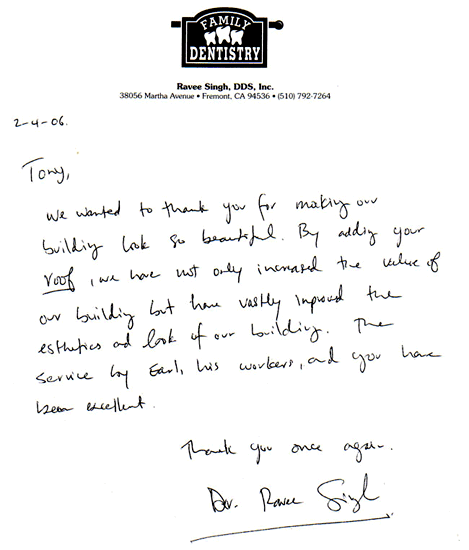 FAMILY
DENTISTRY
Ravee Singh, DDS, Inc.
38056 Martha Avenue • Fremont, CA 94536 • (510) 792-7264
2-4-06.
Tony,
We wanted to thank you for making our
building look so beautiful. By adding your
roof, we have not only increased the value of
our building but have vastly improved the
esthetics and look of our building. The
service by Earl, his workers, and you have
been excellent.
Thank you once again.
Dr. Ravee Singh